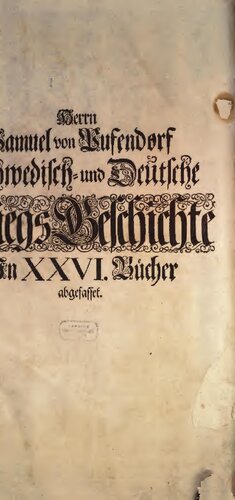 Herrn
Samuel von Pufendorf
hwedisch- und Deütsche
iegs Geschichte
In XXVI. Bücher
abgefasset.